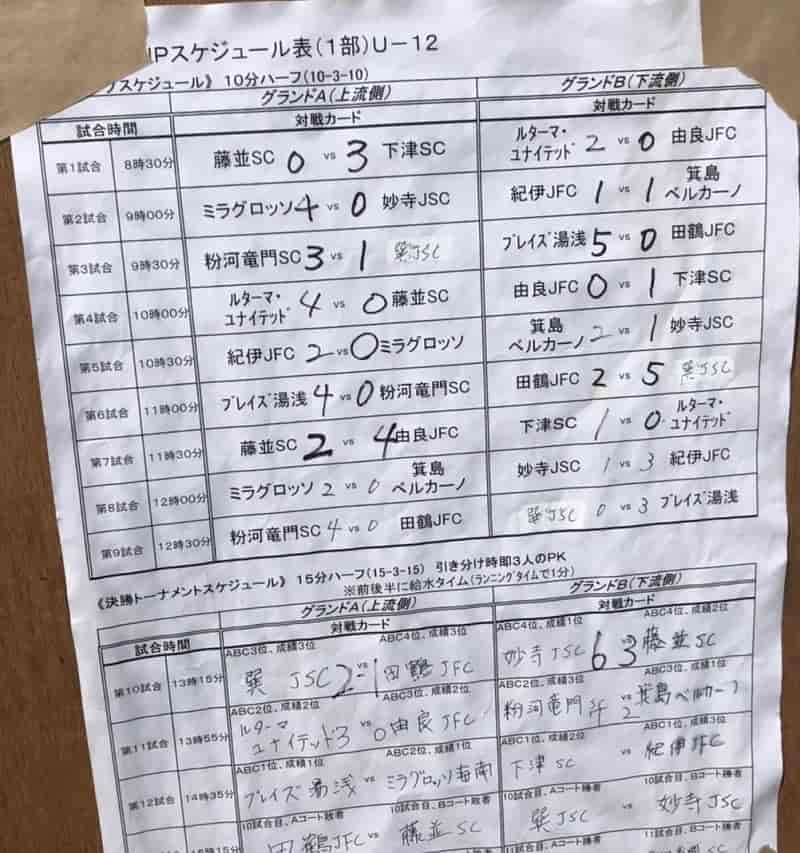 IPスケジュール表(1部)U-12
スケジュール》 10分ハーフ(10-3-10)
グランドA(上流側) グランドB(下流側)
試合時間 対戦カード 対戦カード
第1試合 8時30分 藤並SC 0 vs 3 下津SC ルターマ・ユナイテッド 2 vs 0 由良JFC
第2試合 9時00分 ミラグロッソ 4 vs 0 妙寺JSC 紀伊JFC 1 vs 1 箕島ベルカーノ
第3試合 9時30分 粉河竜門SC 3 vs 1 巽JSC ブレイズ湯浅 5 vs 0 田鶴JFC
第4試合 10時00分 ルターマ・ユナイテッド 4 vs 0 藤並SC 由良JFC 0 vs 1 下津SC
第5試合 10時30分 紀伊JFC 2 vs 0 ミラグロッソ 箕島ベルカーノ 2 vs 1 妙寺JSC
第6試合 11時00分 ブレイズ湯浅 4 vs 0 粉河竜門SC 田鶴JFC 2 vs 5 巽JSC
第7試合 11時30分 藤並SC 2 vs 4 由良JFC 下津SC 1 vs 0 ルターマ・ユナイテッド
第8試合 12時00分 ミラグロッソ 2 vs 0 箕島ベルカーノ 妙寺JSC 1 vs 3 紀伊JFC
第9試合 12時30分 粉河竜門SC 4 vs 0 田鶴JFC 巽JSC 0 vs 3 ブレイズ湯浅
《決勝トーナメントスケジュール》 15分ハーフ(15-3-15) 引き分け時即3人のPK
※前後半に給水タイム(ランニングタイムで1分)
グランドA(上流側) グランドB(下流側)
試合時間 対戦カード 対戦カード
ABC3位、成績3位 ABC4位、成績3位 ABC4位、成績1位 ABC4位、成績2位
第10試合 13時15分 巽 JSC 2 vs 1 田鶴JFC 妙寺JSC 6 3 藤並SC
ABC2位、成績2位 ABC3位、成績2位 ABC2位、成績3位 ABC3位、成績1位
第11試合 13時55分 ルターマユナイテッド 3 vs 0 由良JFC 粉河竜門 4 vs 2 箕島ベルカーノ
ABC1位、成績1位 ABC2位、成績1位 ABC1位、成績2位 ABC1位、成績3位
第12試合 14時35分 ブレイズ湯浅 vs ミラグロッソ海南 下津SC vs 紀伊JFC
10試合目、Aコート敗者 10試合目、Bコート敗者 10試合目、Aコート勝者 10試合目、Bコート勝者
田鶴JFC vs 藤並SC 巽JSC vs 妙寺JSC